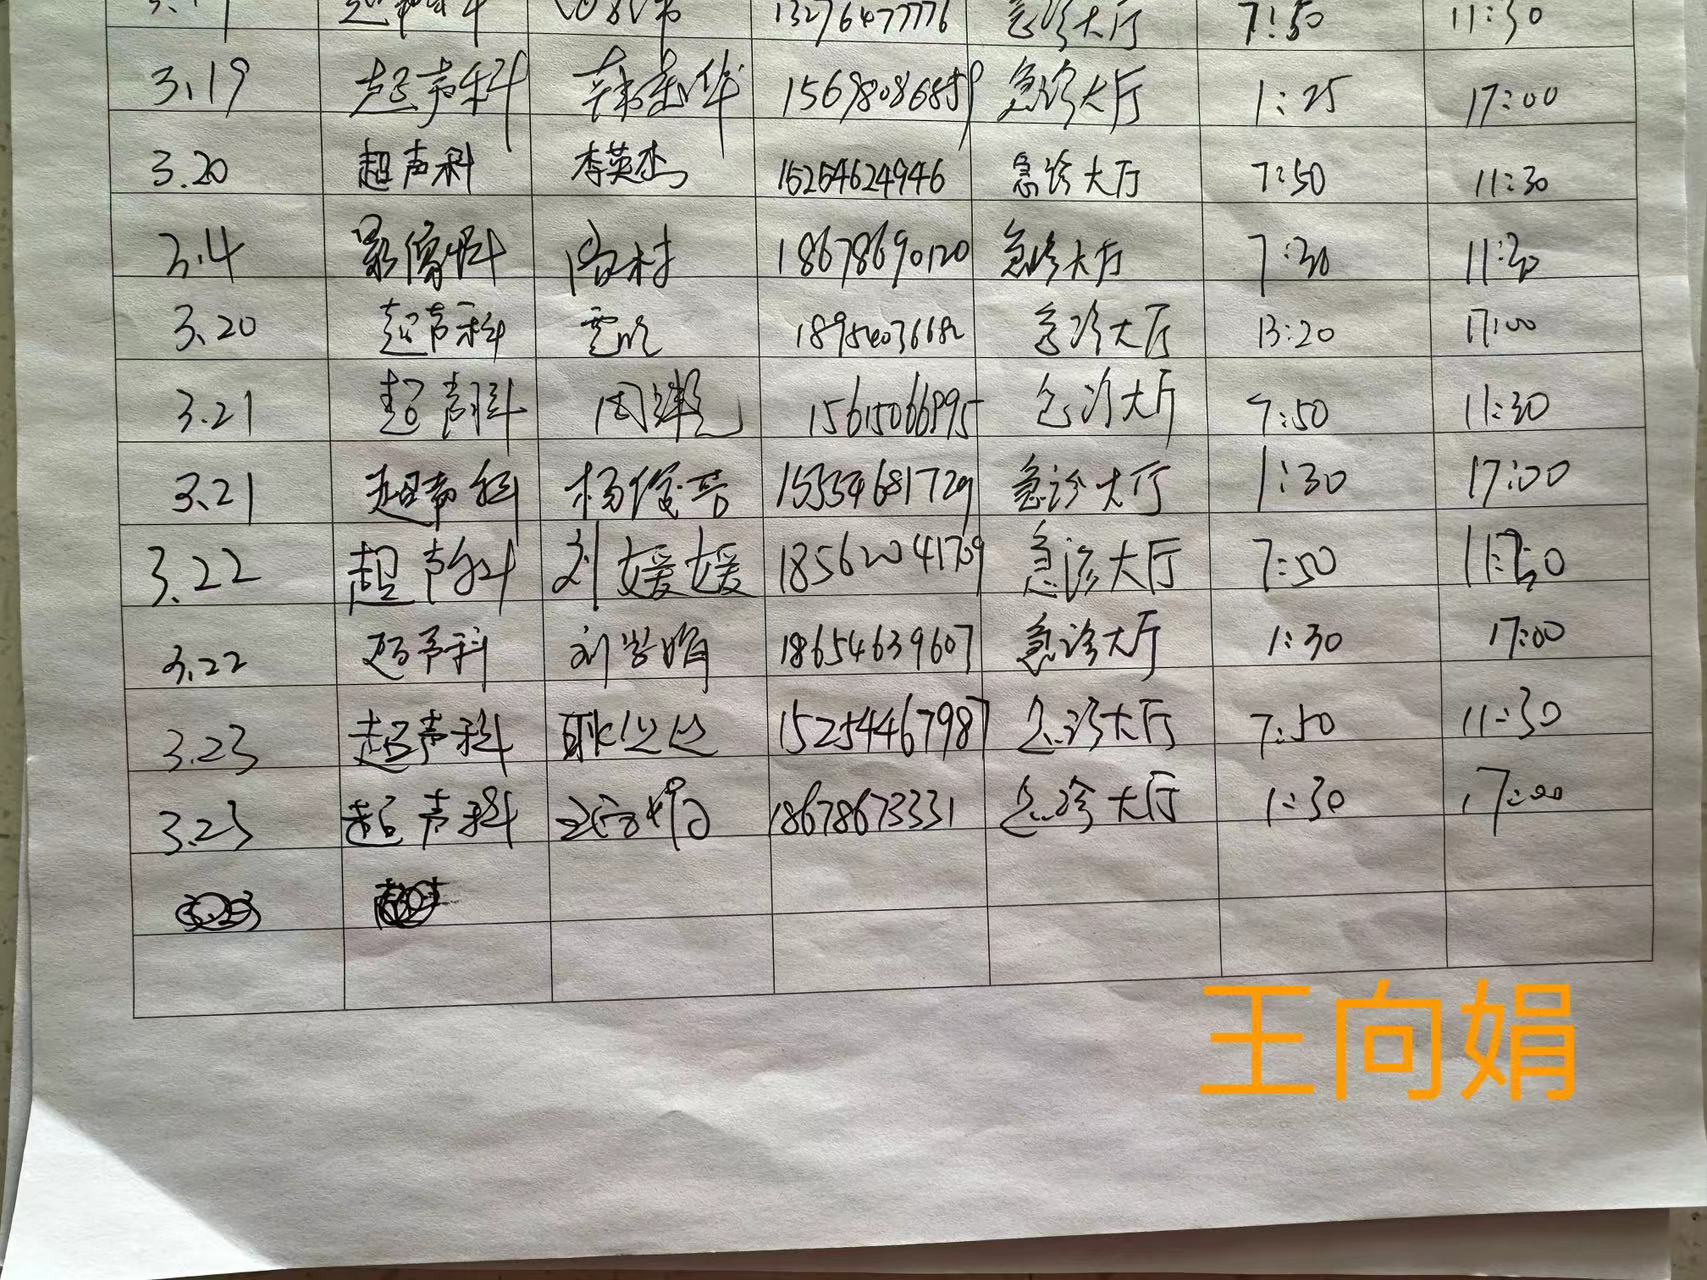 13276477776 急诊大厅 7:50 11:30
3.19 超声科 15698086859 急诊大厅 1:25 17:00
3.20 超声科 李英杰 15254624946 急诊大厅 7:50 11:30
3.14 影像科 18678690120 急诊大厅 7:30 11:30
3.20 超声科 急诊大厅 13:20 17:00
3.21 超声科 15615066995 急诊大厅 7:50 11:30
3.21 超声科 15554681729 急诊大厅 1:30 17:00
3.22 超声科 刘媛媛 18562041709 急诊大厅 7:50
3.22 超声科 刘学娟 18654639607 急诊大厅 1:30 17:00
3.23 超声科 15254467987 急诊大厅 7:50 11:30
3.23 超声科 18678673331 急诊大厅 1:30 17:00
王向娟